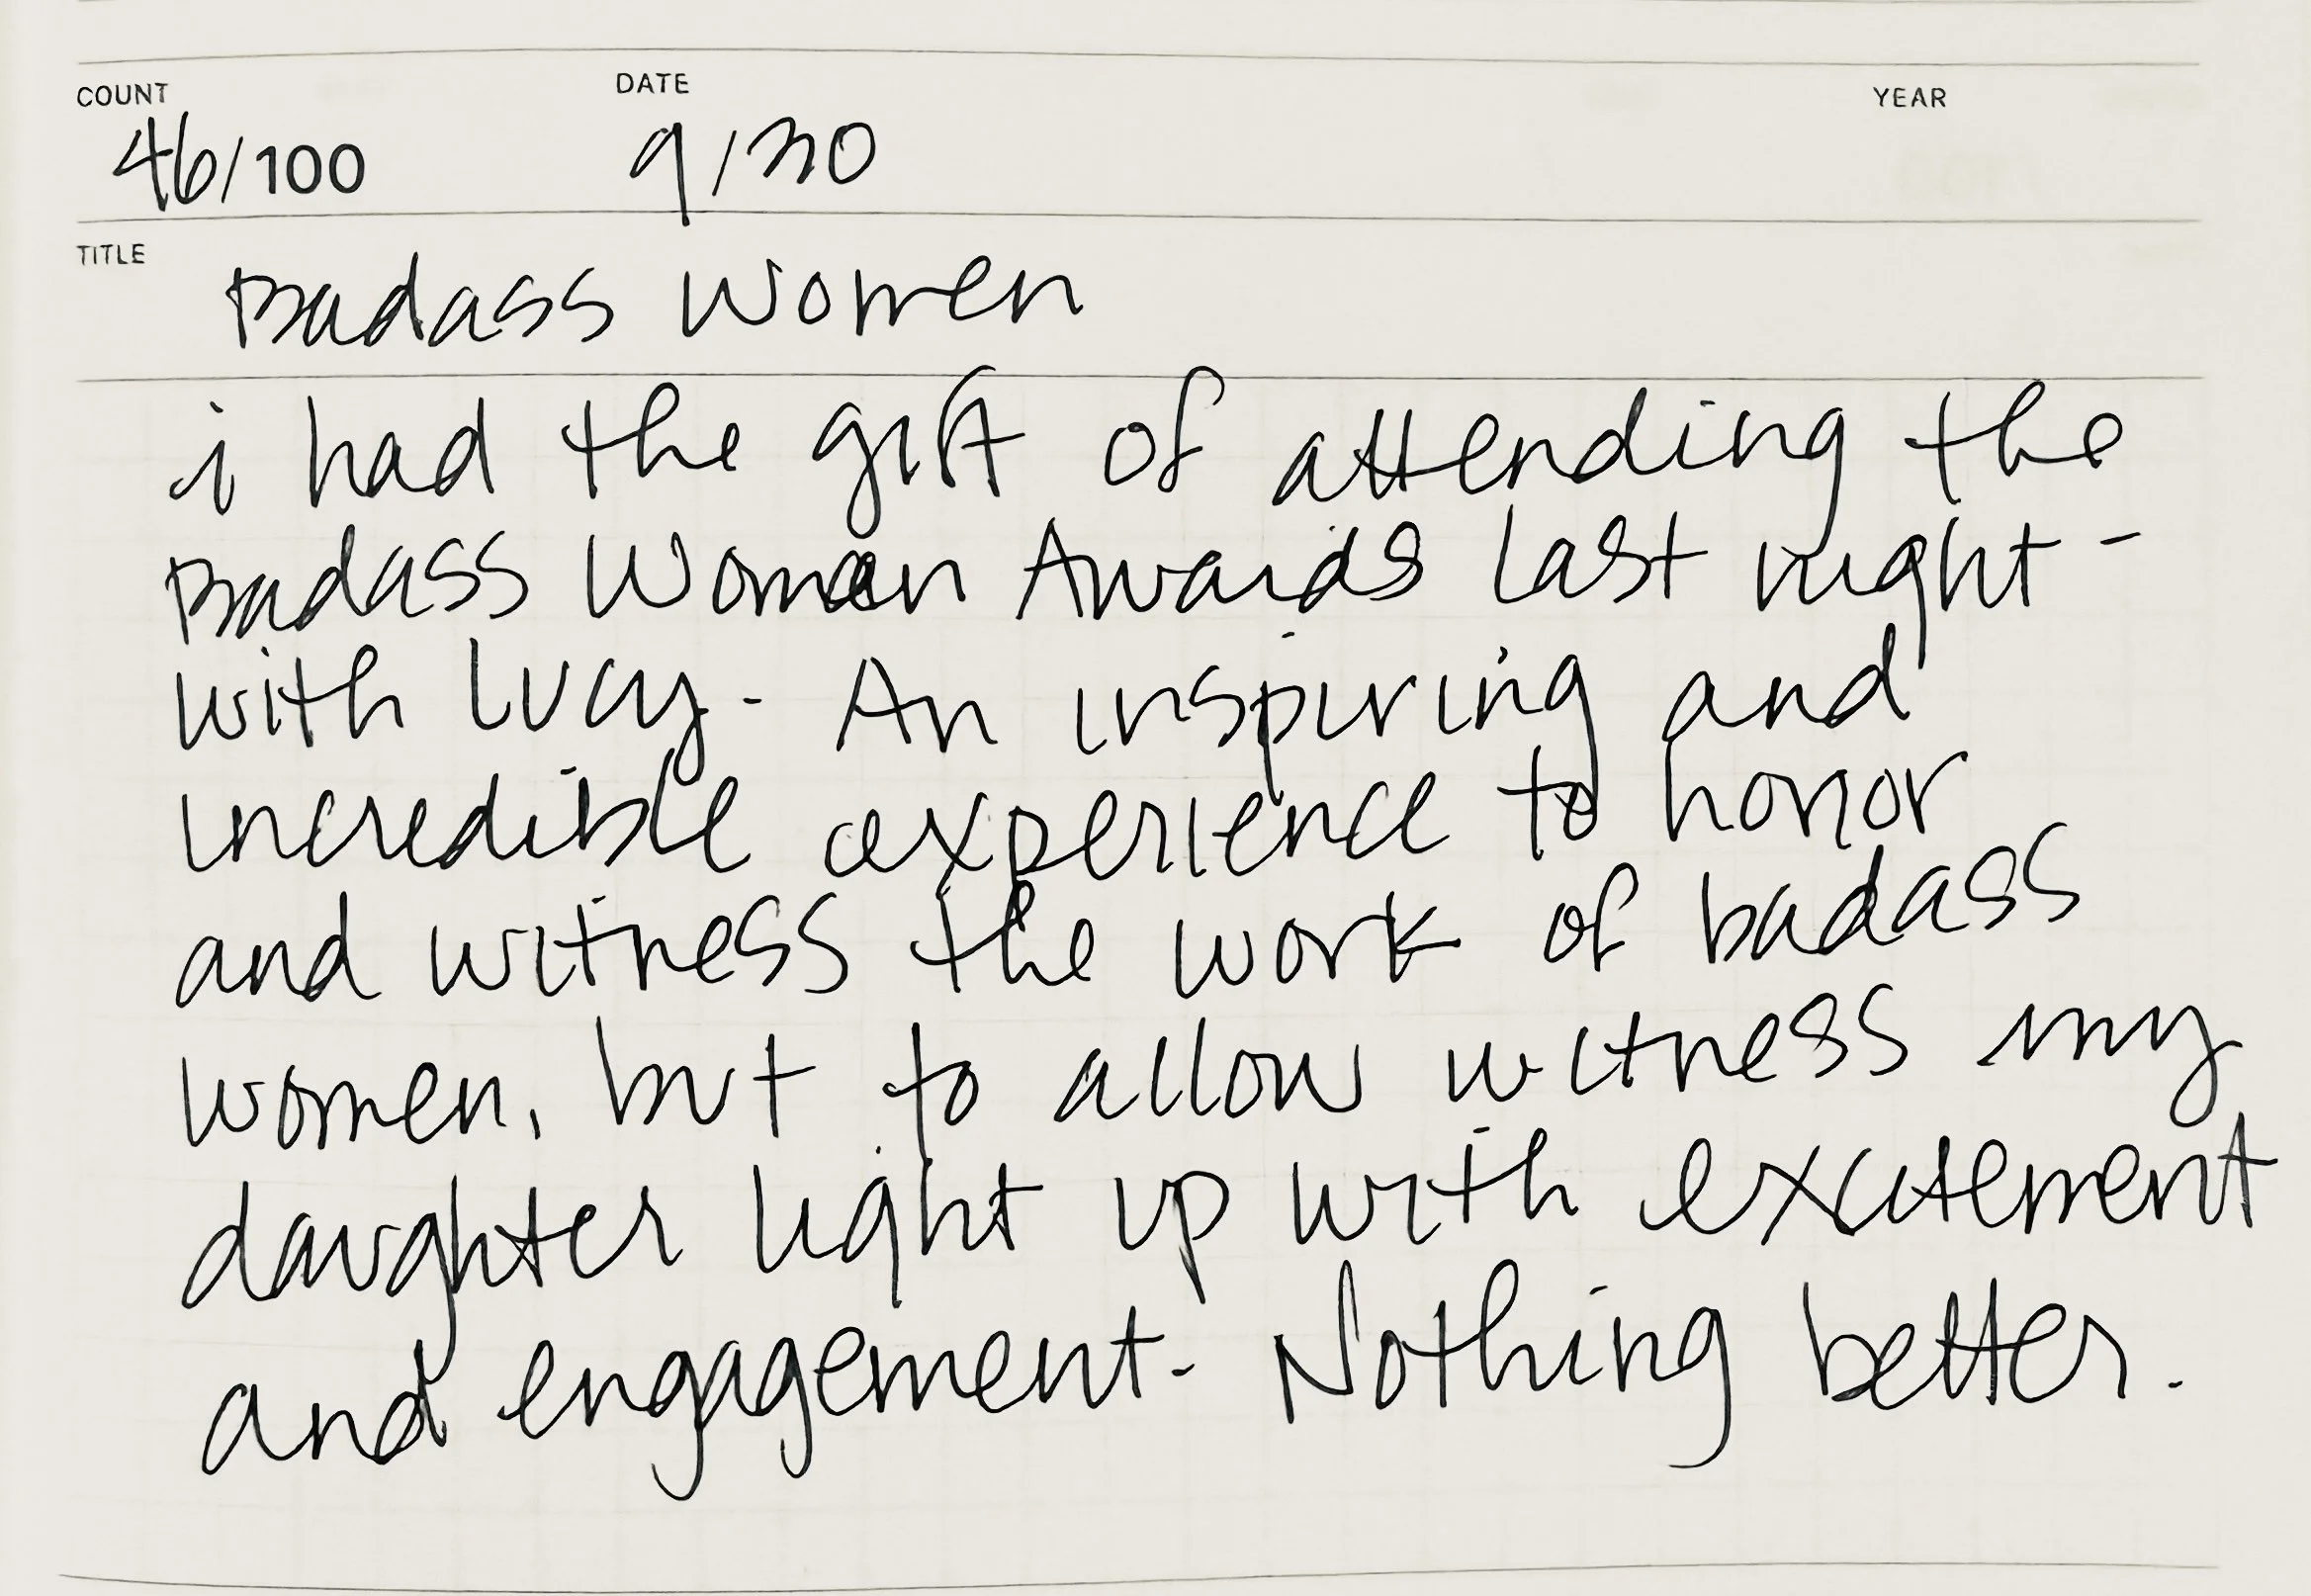 COUNT DATE YEAR
46/100 9/30
TITLE Badass Women
i had the gift of attending the
Badass Woman Awards last night -
with Lucy. An inspiring and
incredible experience to honor
and witness the work of badass
women, but to allow witness my
daughter light up with excitement
and engagement. Nothing better.